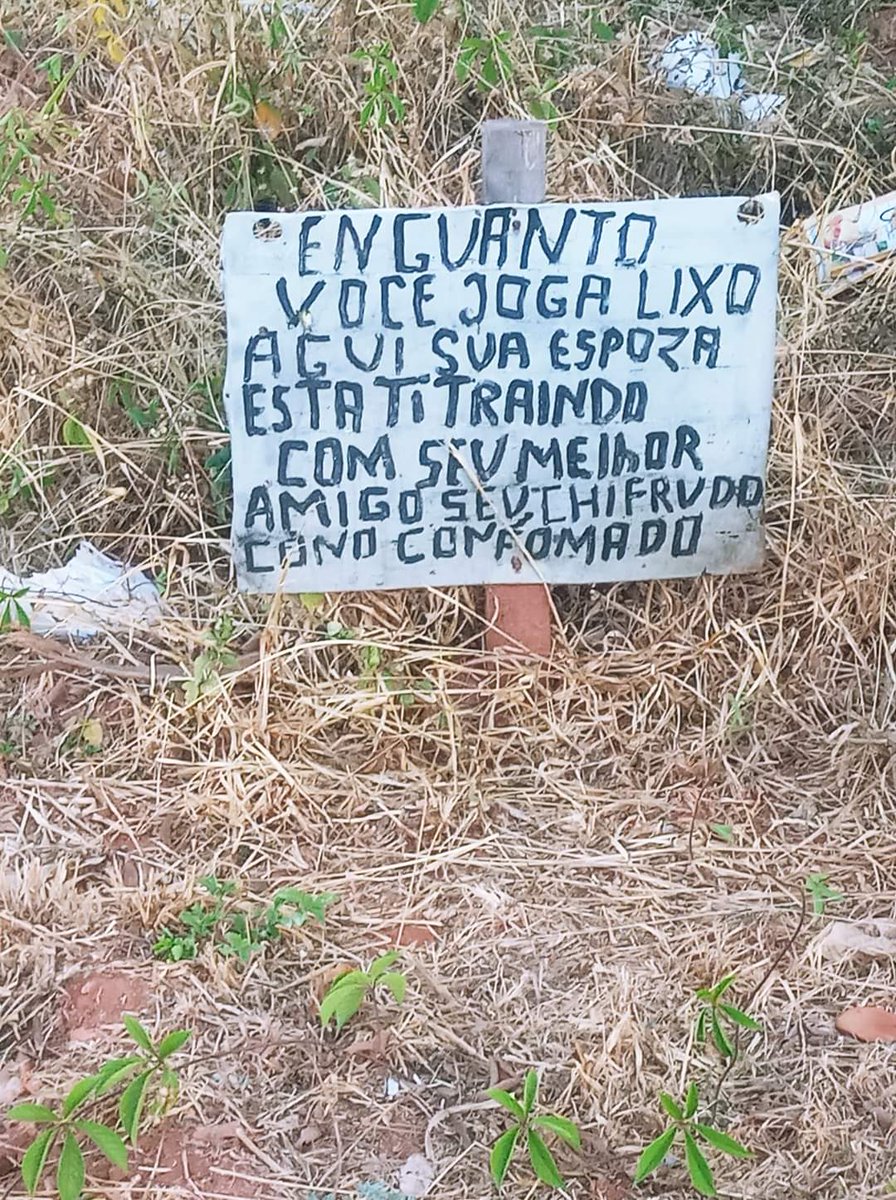 ENGUANTO
VOCE JOGA LIXO
AGUI SUA ESPOZA
ESTA Ti TRAINDO
COM SEU MElhOR
AMIGO SEU CHIFRUDO
CONO CONFOMADO